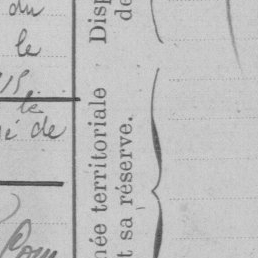 du
le
le
de
Com
Disp
de
née territoriale
t sa réserve.